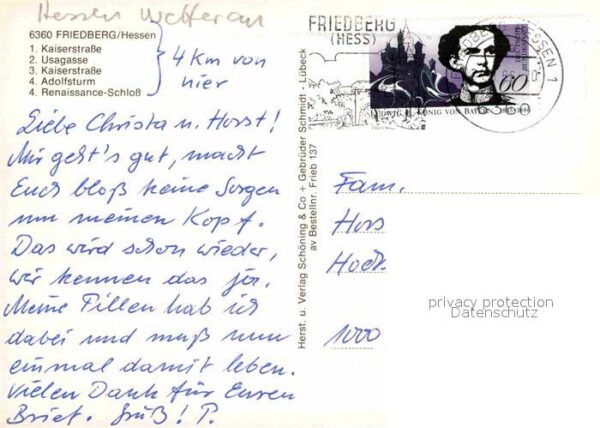 Hessen Wetterau
6360 FRIEDBERG/Hessen
1. Kaiserstraße
2. Usagasse
3. Kaiserstraße
4. Adolfsturm
4. Renaissance-Schloß
4 km von
hier
Liebe Christa u. Horst!
Mir geht's gut, macht
Euch bloß keine Sorgen
um meinen Kopf.
Das wird schon wieder,
wir kennen das ja.
Meine Pillen hab ich
dabei und muß nun
einmal damit leben.
Vielen Dank für Euren
Brief. Gruß! P.
Herst. u. Verlag Schöning & Co + Gebrüder Schmidt - Lübeck
av Bestellnr. Frieb 137
FRIEDBERG
(HESS)
60
LUDWIG II. KÖNIG VON BAYERN
Fam.
Hors
Hoeh
1000
privacy protection
Datenschutz